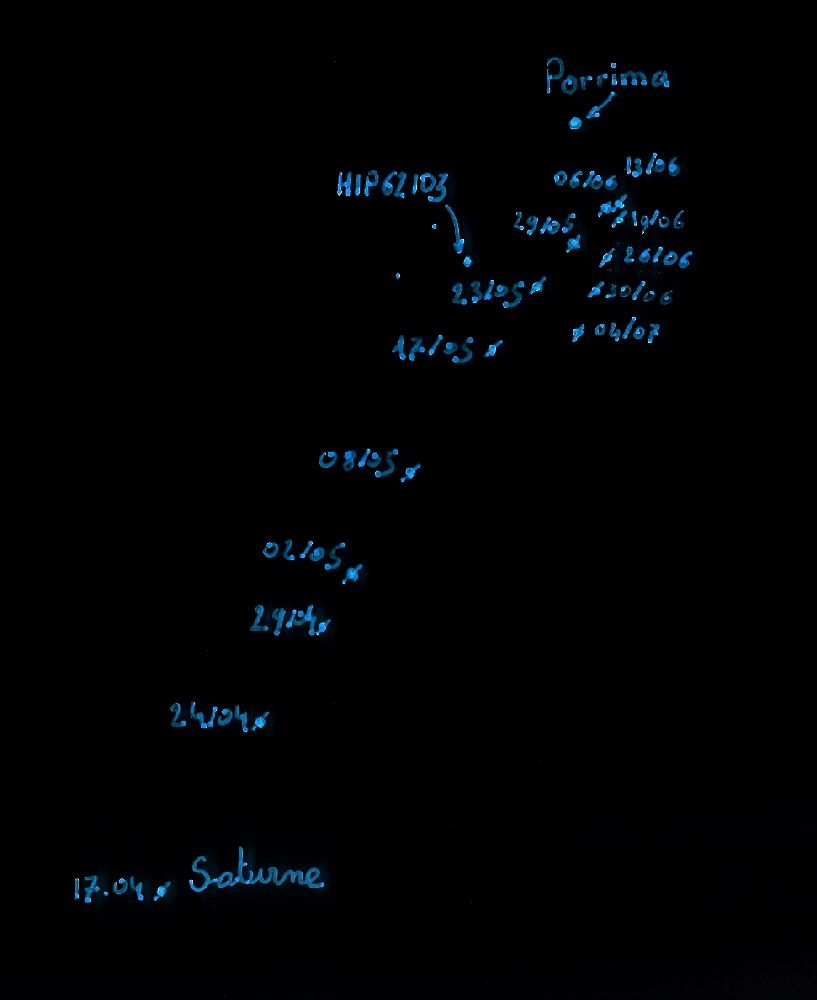 Porrima
13/06
06/06
HIP62103
29/05
19/06
26/06
23/05
30/06
04/07
17/05
08/05
02/05
29/04
24/04
17.04
Saturne